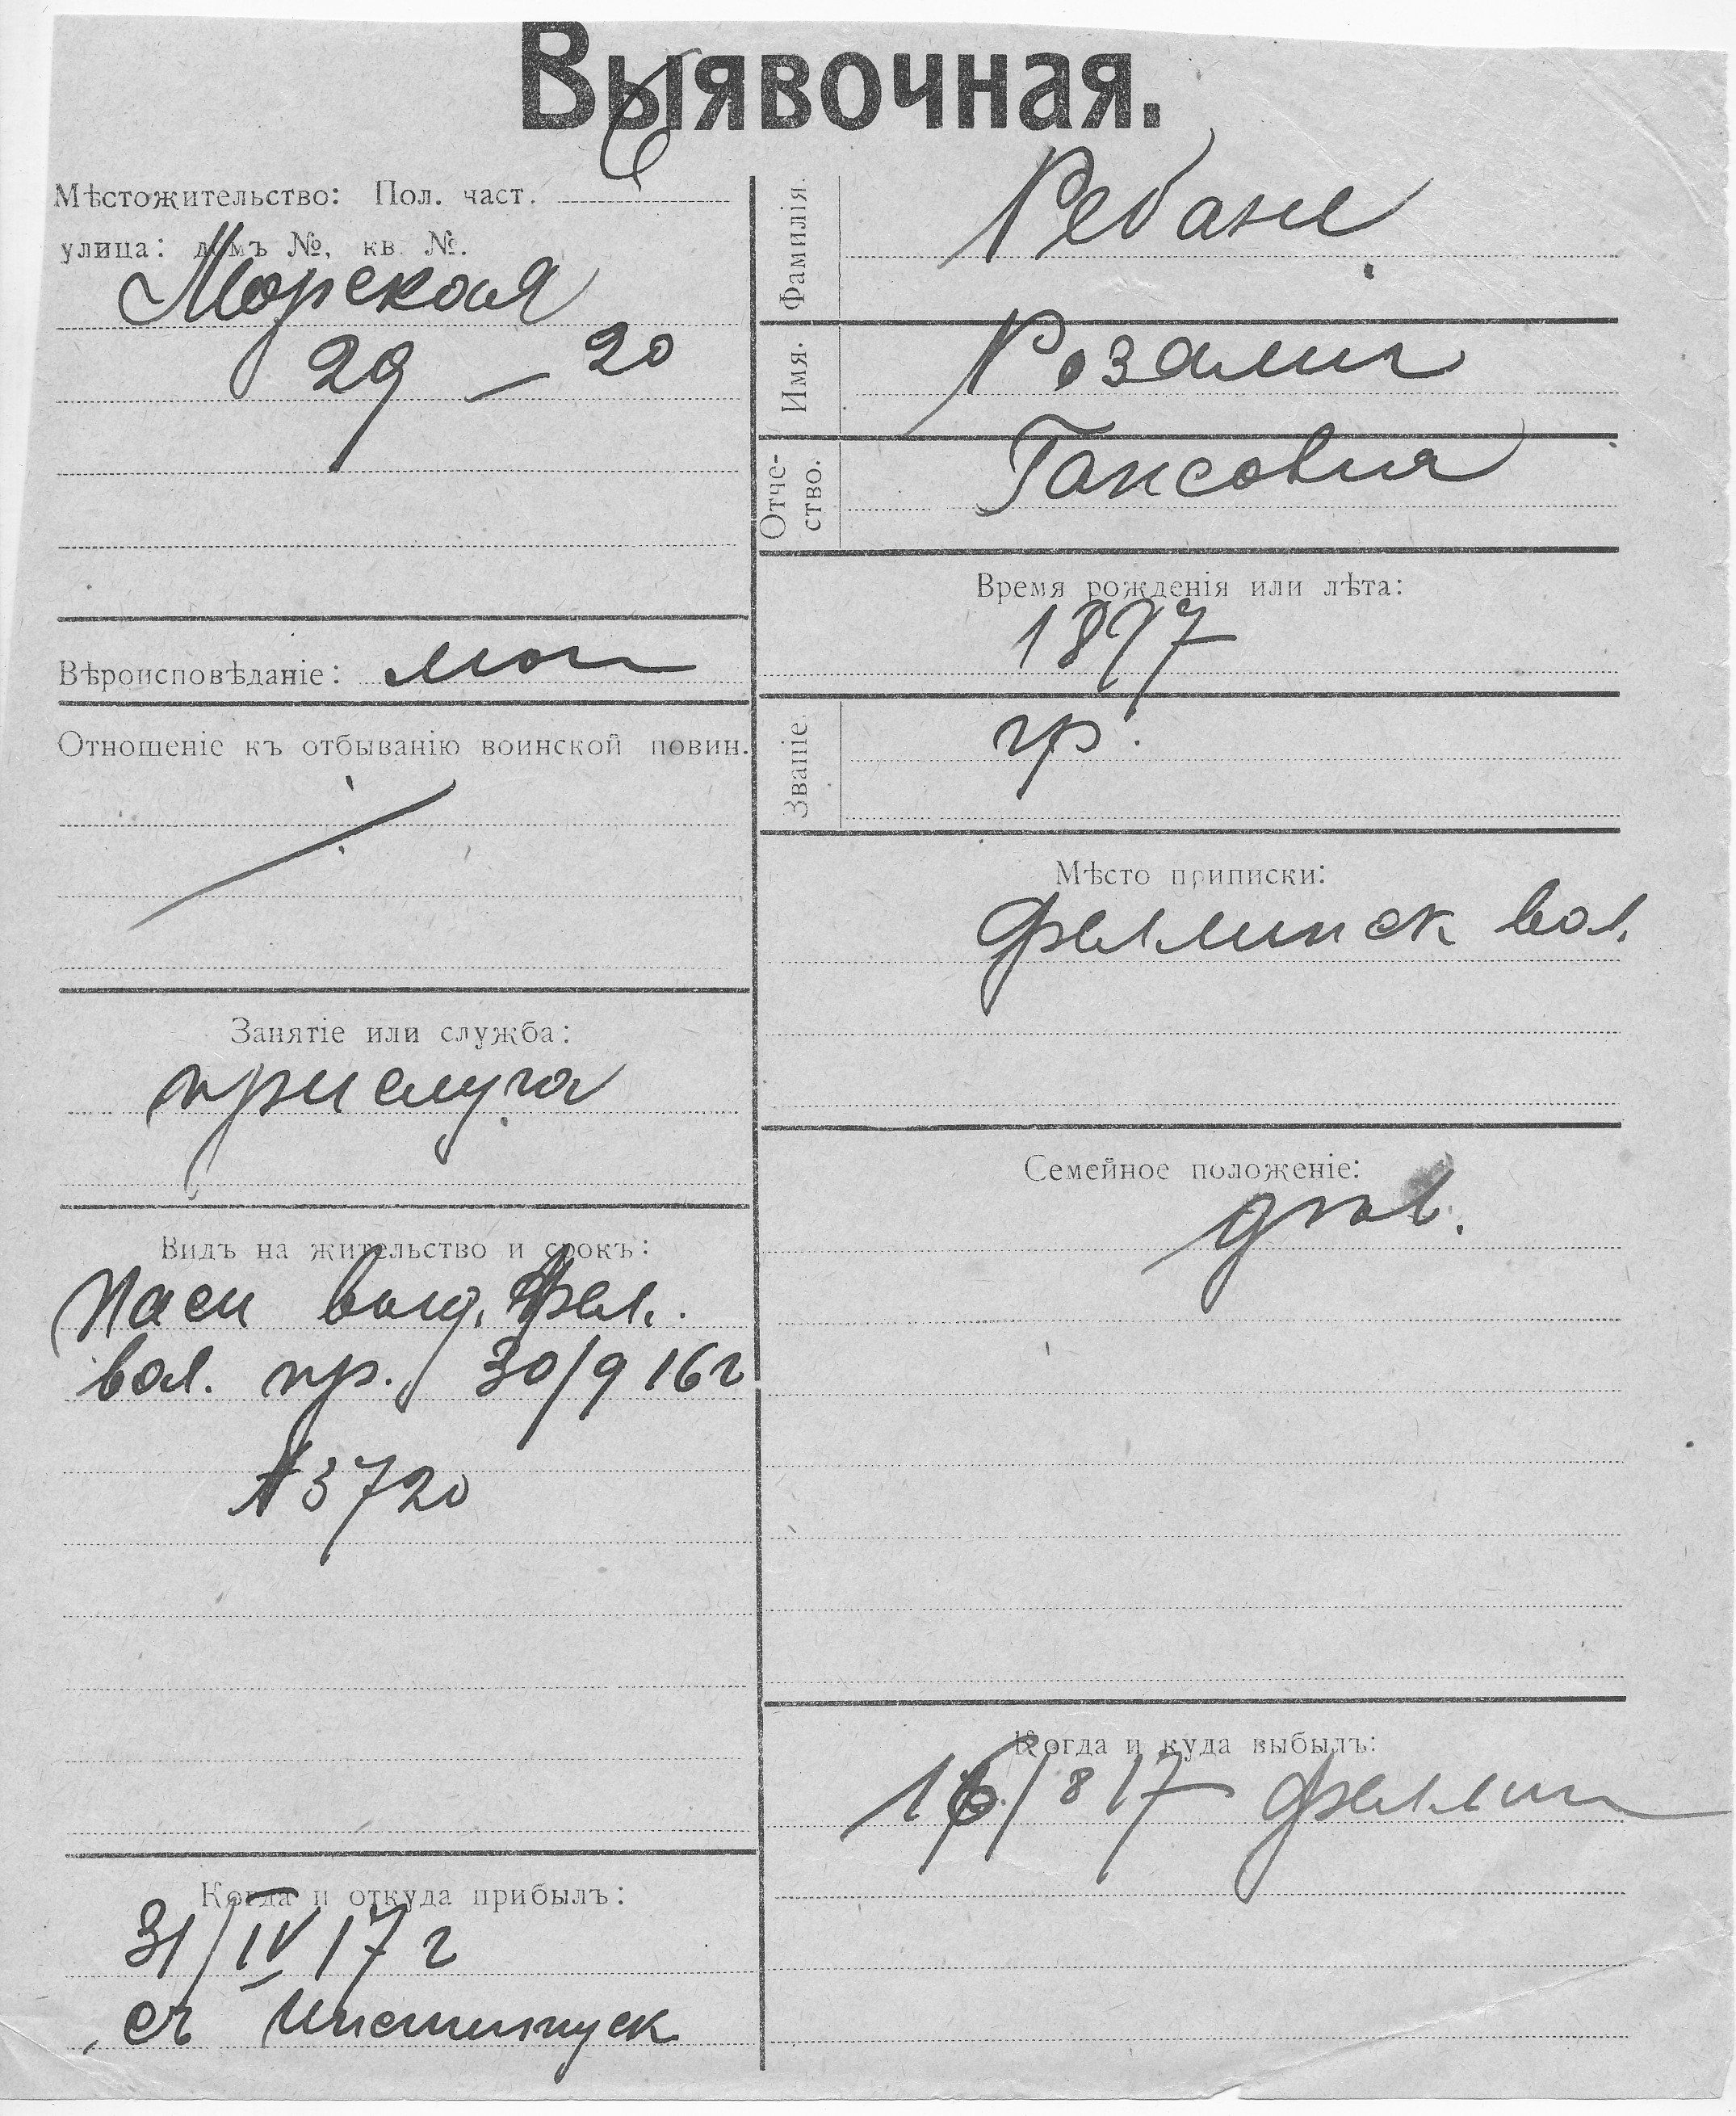 Выявочная.
Мѣстожительство: Пол. част.
улица: домъ №, кв. №.
Морская
29 – 20
Вѣроисповѣданіе: лют
Отношеніе къ отбыванію воинской повин.
Занятіе или служба:
прислуга
Видъ на жительство и срокъ:
Пасп выд. Фел.
вол. пр. 30/9 16 г
№ 3720
Когда и откуда прибылъ:
31/IV 17 г
съ
Фамилія.
Ребане
Имя.
Розалия
Отче-
ство.
Гансовна
Время рожденія или лѣта:
1897
Званіе.
гр.
Мѣсто приписки:
Феллинск вол.
Семейное положеніе:
Когда и куда выбылъ:
16/8 17 Феллин